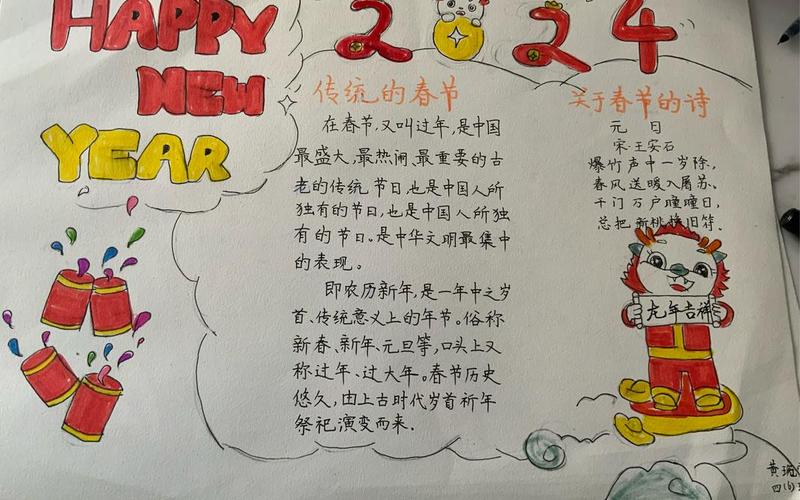 HAPPY
NEW
YEAR
2024
传统的春节
在春节,又叫过年,是中国
最盛大、最热闹、最重要的古
老的传统节日也是中国人所
独有的节日,也是中国人所独
有的节日。是中华文明最集中
的表现。
即农历新年,是一年中之岁
首、传统意义上的年节。俗称
新春、新年、元旦等,口头上又
称过年、过大年。春节历史
悠久,由上古时代岁首祈年
祭祀演变而来.
关于春节的诗
元 日
宋·王安石
爆竹声中一岁除,
春风送暖入屠苏、
千门万户曈曈日,
总把新桃换旧符.
龙年吉祥
黄
四(6)